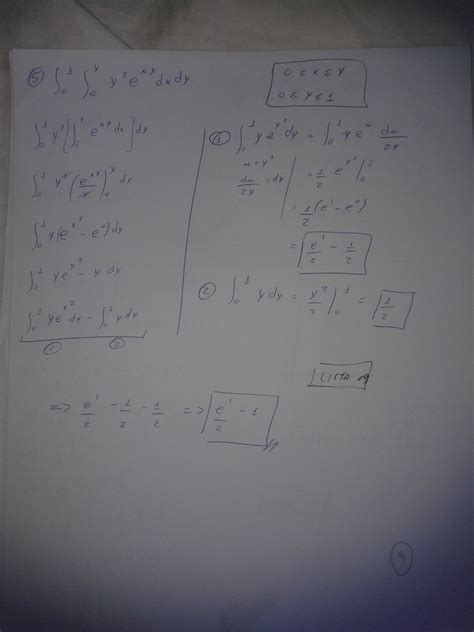 ⑤ ∫₀¹ ∫₀^y y² e^{xy} dx dy
0 ≤ x ≤ y
0 ≤ y ≤ 1
∫₀¹ y² [∫₀^y e^{xy} dx] dy
∫₀¹ y² (e^{xy}/y)|₀^y dy
∫₀¹ y(e^{y²} - e⁰) dy
∫₀¹ y e^{y²} - y dy
∫₀¹ y e^{y²} dy - ∫₀¹ y dy
① ②
① ∫₀¹ y e^{y²} dy = ∫₀¹ y e^u · du/2y
u = y²
du/2y = dy
= 1/2 e^{y²} |₀¹
= 1/2 (e¹ - e⁰)
= e¹/2 - 1/2
② ∫₀¹ y dy = y²/2 |₀¹ = 1/2
LISTA 09
=> e¹/2 - 1/2 - 1/2 => e¹/2 - 1